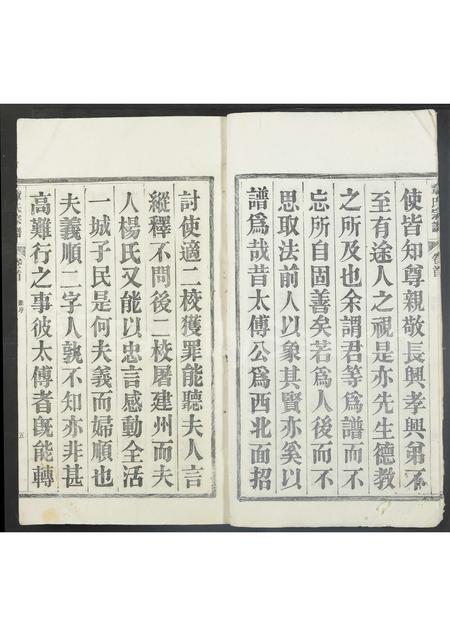 使皆知尊親敬長興孝興弟不
至有途人之視是亦先生德教
之所及也余謂君等為譜而不
忘所自固善矣若為人後而不
思取法前人以象其賢亦奚以
譜爲哉昔太傅公爲西北面招
討使適二校獲罪能聽夫人言
縱釋不問後二校屠建州而夫
人楊氏又能以忠言感動全活
一城子民是何夫義而婦順也
夫義順二字人孰不知亦非甚
高難行之事彼太傅者旣能轉
章氏宗譜
卷首
五